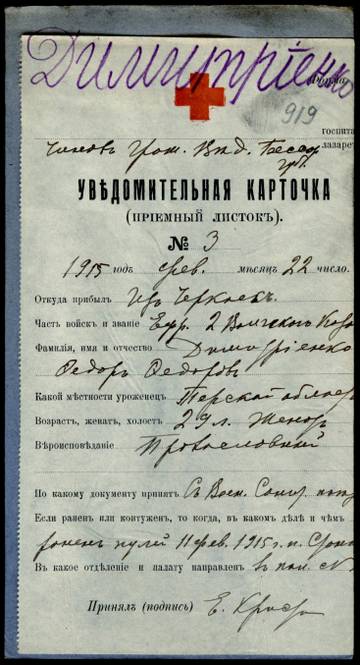 Димитріенко
Форма
919
госпита
лазарет
Чиновъ Гром. Вѣд. Бессар.
губ.
УВѢДОМИТЕЛЬНАЯ КАРТОЧКА
(ПРІЕМНЫЙ ЛИСТОКЪ).
№ 3
1915 годъ фев. мѣсяцъ 22 число.
Откуда прибылъ изъ Черкасъ.
Часть войскъ и званіе Ефр. 2
Фамилія, имя и отчество Димитріенко
Федоръ Федоров
Какой мѣстности уроженецъ Терской област
Возрастъ, женатъ, холостъ 29 л. Женат
Вѣроисповѣданіе Православный
По какому документу принятъ Съ Воен. Санит.
Если раненъ или контуженъ, то когда, въ какомъ дѣлѣ и чѣмъ
ранен пулей 11 фев. 1915 г.
Въ какое отдѣленіе и палату направленъ въ пал. №
Принялъ (подпись) Е.